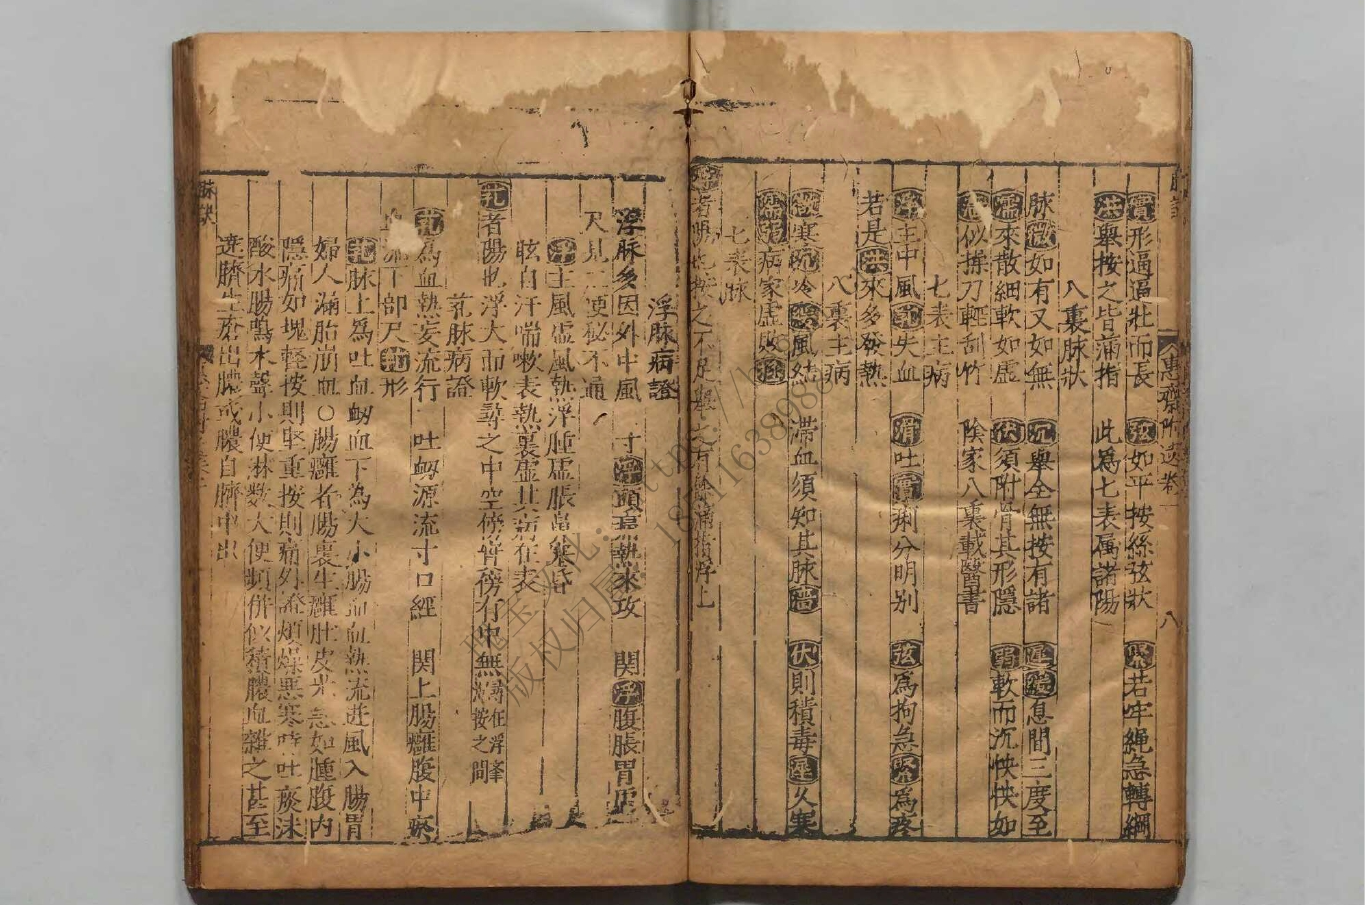 實形逼逼壯而長 弦如平按絲弦狀 緊若牢繩急轉綱
洪舉按之皆滿指 此為七表属諸陽
八裏脉狀
脉微如有又如無 沉舉全無按有諸 遲緩息間三度至
濡來散細軟如虛 伏須附骨其形隱 弱軟而沉怏怏如
似操刀輕刮竹 陰家八裏載醫書
七表主病
浮主中風芤失血 滑吐實痢分明别 弦為拘急緊為疼
若是洪來多發熱
八裏主病
寒沉冷 風結 滞血須知其脉濇 伏則積毒遲久寒
濡弱病家虛敗
七表脉
者陽也按之不足舉之有餘滿指浮上
浮脉病證
浮脉多因外中風 寸浮頭痛熱來攻 関浮腹脹胃虛
尺見二便秘不通
浮主風虛風熱浮腫虛脹
眩自汗喘嗽表熱裏虛其病在表
芤者陽也浮大而軟尋之中空傍實傍有中無
芤脉病證
芤為血熱妄流行 吐衂源流寸口經 関上腸癰腹中瘀
下部尺 形
芤脉上為吐血衂血下為大小腸血血熱流进風入腸胃
婦人漏胎崩血○腸癰者腸裏生癰肚皮 急如腫腹内
隱痛如塊輕按則堅重按則痛外證煩燥惡寒時吐痰沫
酸水腸鳴水聲小便淋数大便頻併似積膿血雜之甚至
遶臍生瘡出膿或膿自臍中出
脉訣
八